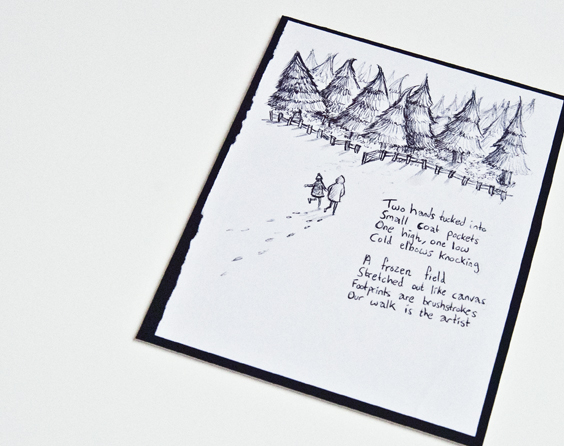 Two hands tucked into
Small coat pockets
One high, one low
Cold elbows knocking
A frozen field
Stretched out like canvas
Footprints are brushstrokes
Our walk is the artist